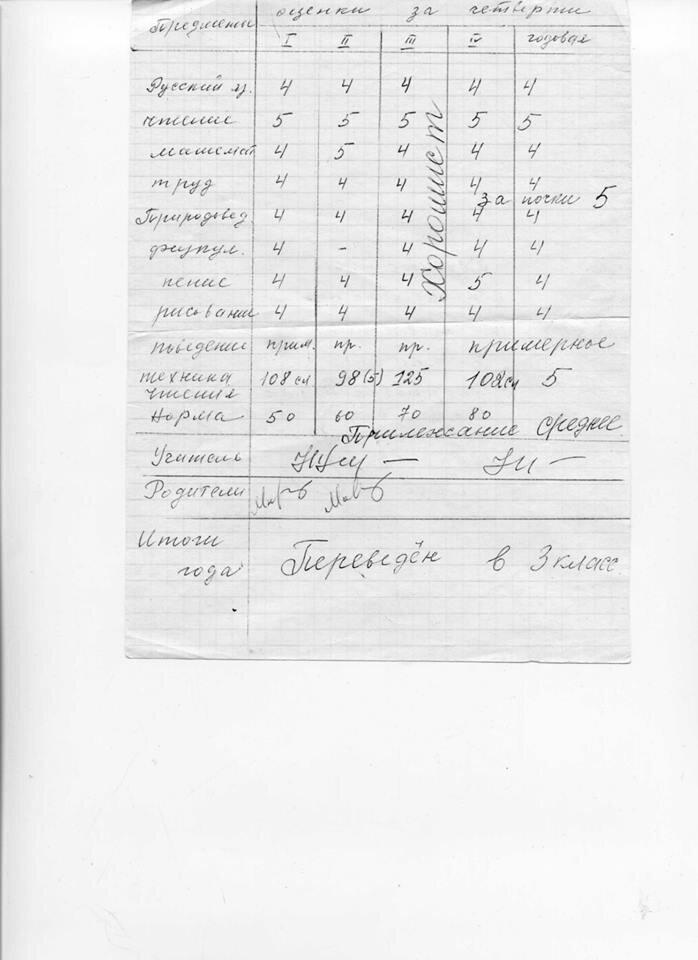 Предметы оценки за четверти
I II III IV годовая
Русский яз. 4 4 4 4 4
чтение 5 5 5 5 5
математ 4 5 4 4 4
труд 4 4 4 4 4
за почки 5
Природовед. 4 4 4 4 4
физкул. 4 - 4 4 4
пение 4 4 4 5 4
рисование 4 4 4 4 4
Хорошист
поведение прим. пр. пр. примерное
техника чтения 108 сл 98 (5) 125 108 сл 5
Норма 50 60 70 80
Прилежание среднее
Учитель
Родители
Итоги года Переведён в 3 класс.